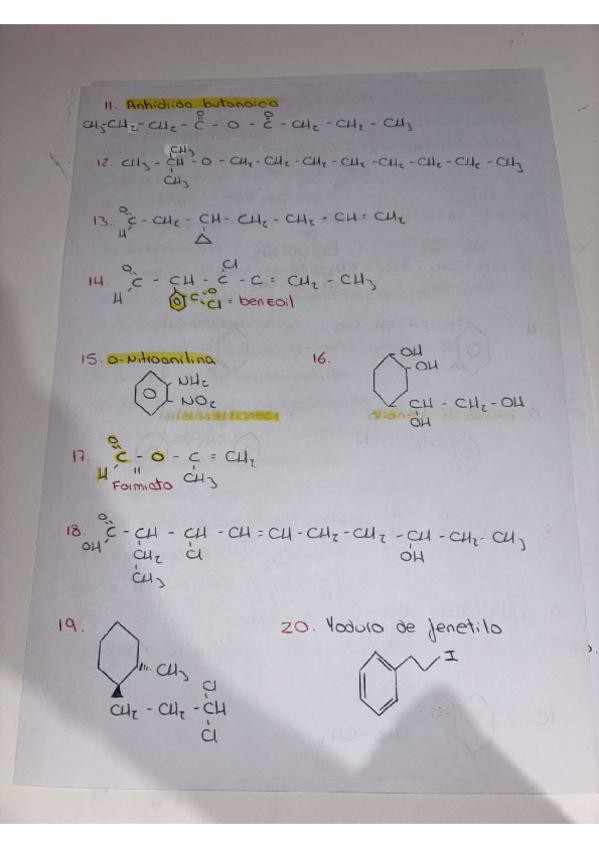 11. Anhidrido butanoico
O O
CH3-CH2-CH2-C-O-C-CH2-CH2-CH3
CH3
12. CH3-CH-O-CH2-CH2-CH2-CH2-CH2-CH2-CH2-CH3
CH3
O
13. C-CH2-CH-CH2-CH2-CH=CH2
H
Cl
O
14. C-CH-C-C=CH2-CH3
H C O Cl = benzoil
15. O-Nitroanilina
NH2
NO2
16.
OH
OH
CH-CH2-OH
OH
O
17. C-O-C=CH2
H CH3
Formiato
O
18. C-CH-CH-CH=CH-CH2-CH2-CH-CH2-CH3
OH CH2 Cl OH
CH3
19.
CH3
Cl
CH2-CH2-CH
Cl
20. Yoduro de fenetilo
I